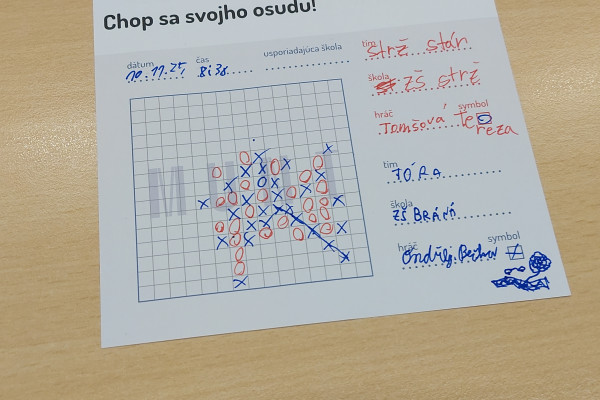 Chop sa svojho osudu!
dátum 19.11.25 čas 8:30 usporiadajúca škola
tím strž stán
škola zš strž
hráč symbol
Tomšová Te
reza
MUNI
tím
JÓRA
škola
ZŠ BRÁNÁ
hráč symbol
Ondřej